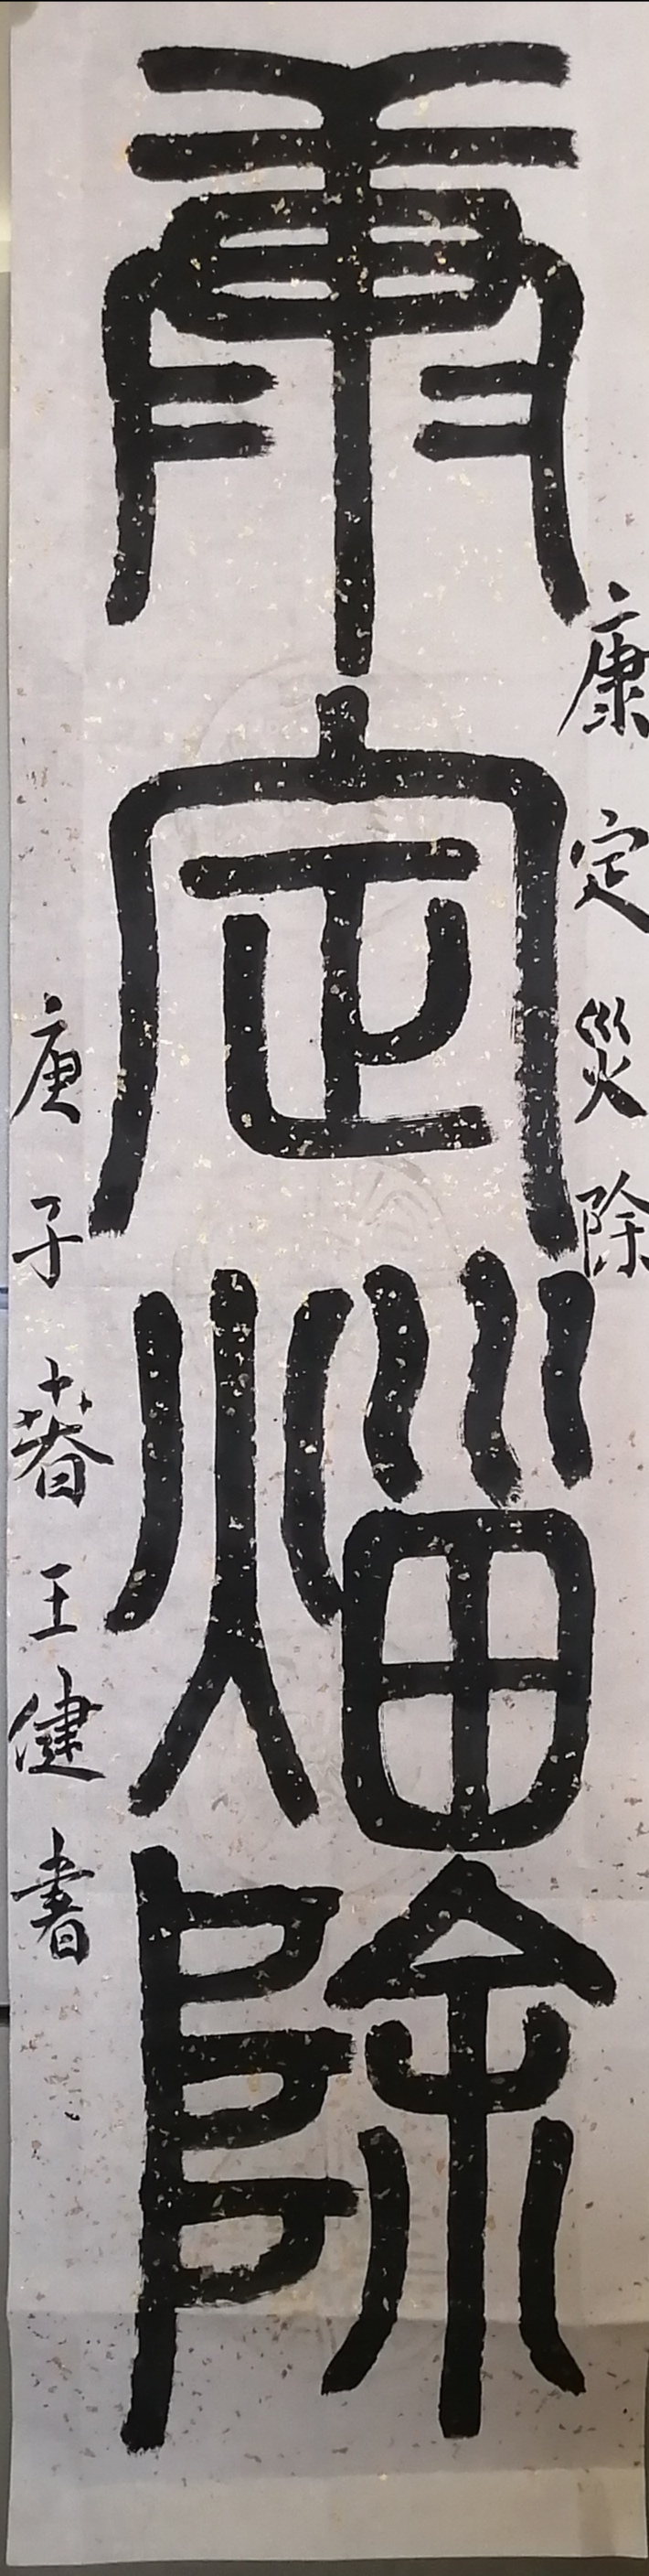 康定災除
康定災除
庚子春王健書